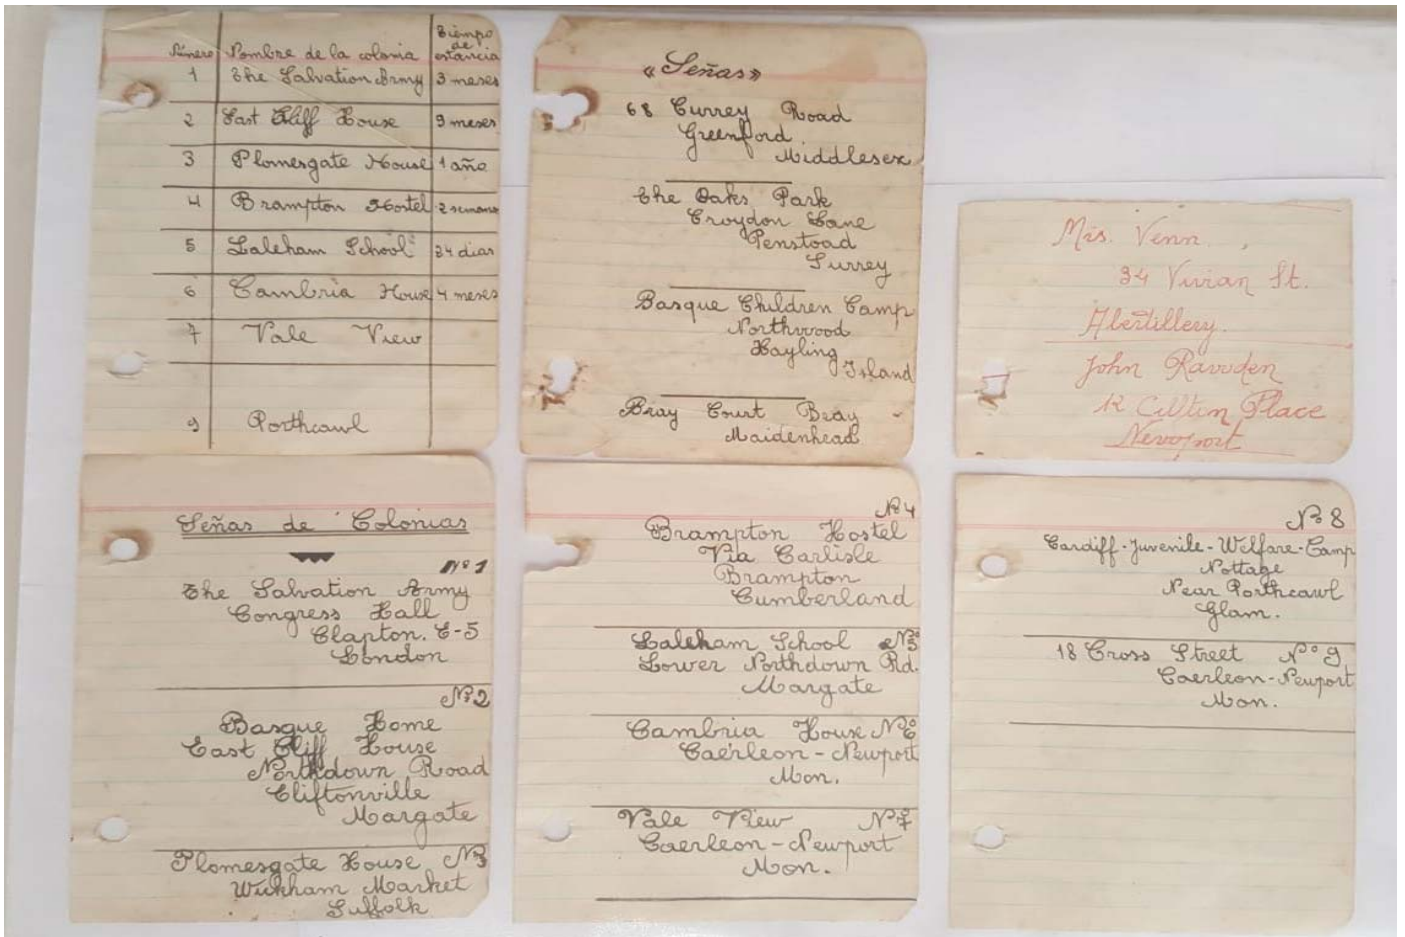 Número Nombre de la colonia Tiempo de estancia
1 The Salvation Army 3 meses
2 East Cliff House 9 meses
3 Plomesgate House 1 año
4 Brampton Hostel 2 semana
5 Laleham School 24 dias
6 Cambria House 4 meses
7 Vale View
9 Porthcawl
«Señas»
68 Currey Road
Greenford
Middlesex
The Oaks Park
Croydon Lane
Penstoad
Surrey
Basque Children Camp
Northwood
Hayling
Island
Bray Court Bray -
Maidenhead
Mrs. Venn.
34 Vivian St.
Abertillery.
John Ravuden
12 Place
Newport
Señas de Colonias
Nº 1
The Salvation Army
Congress Hall
Clapton. E-5
London
Nº2
Basque Home
East Cliff House
Northdown Road
Cliftonville
Margate
Plomesgate House Nº3
Wickham Market
Suffolk
Nº4
Brampton Hostel
Via Carlisle
Brampton
Cumberland
Laleham School Nº5
Lower Northdown Rd.
Margate
Cambria House Nº6
Caerleon - Newport
Mon.
Vale View Nº7
Caerleon - Newport
Mon.
Nº 8
Cardiff-Juvenile-Welfare-Camp
Nottage
Near Porthcawl
Glam.
18 Cross Street Nº 9
Caerleon-Newport
Mon.